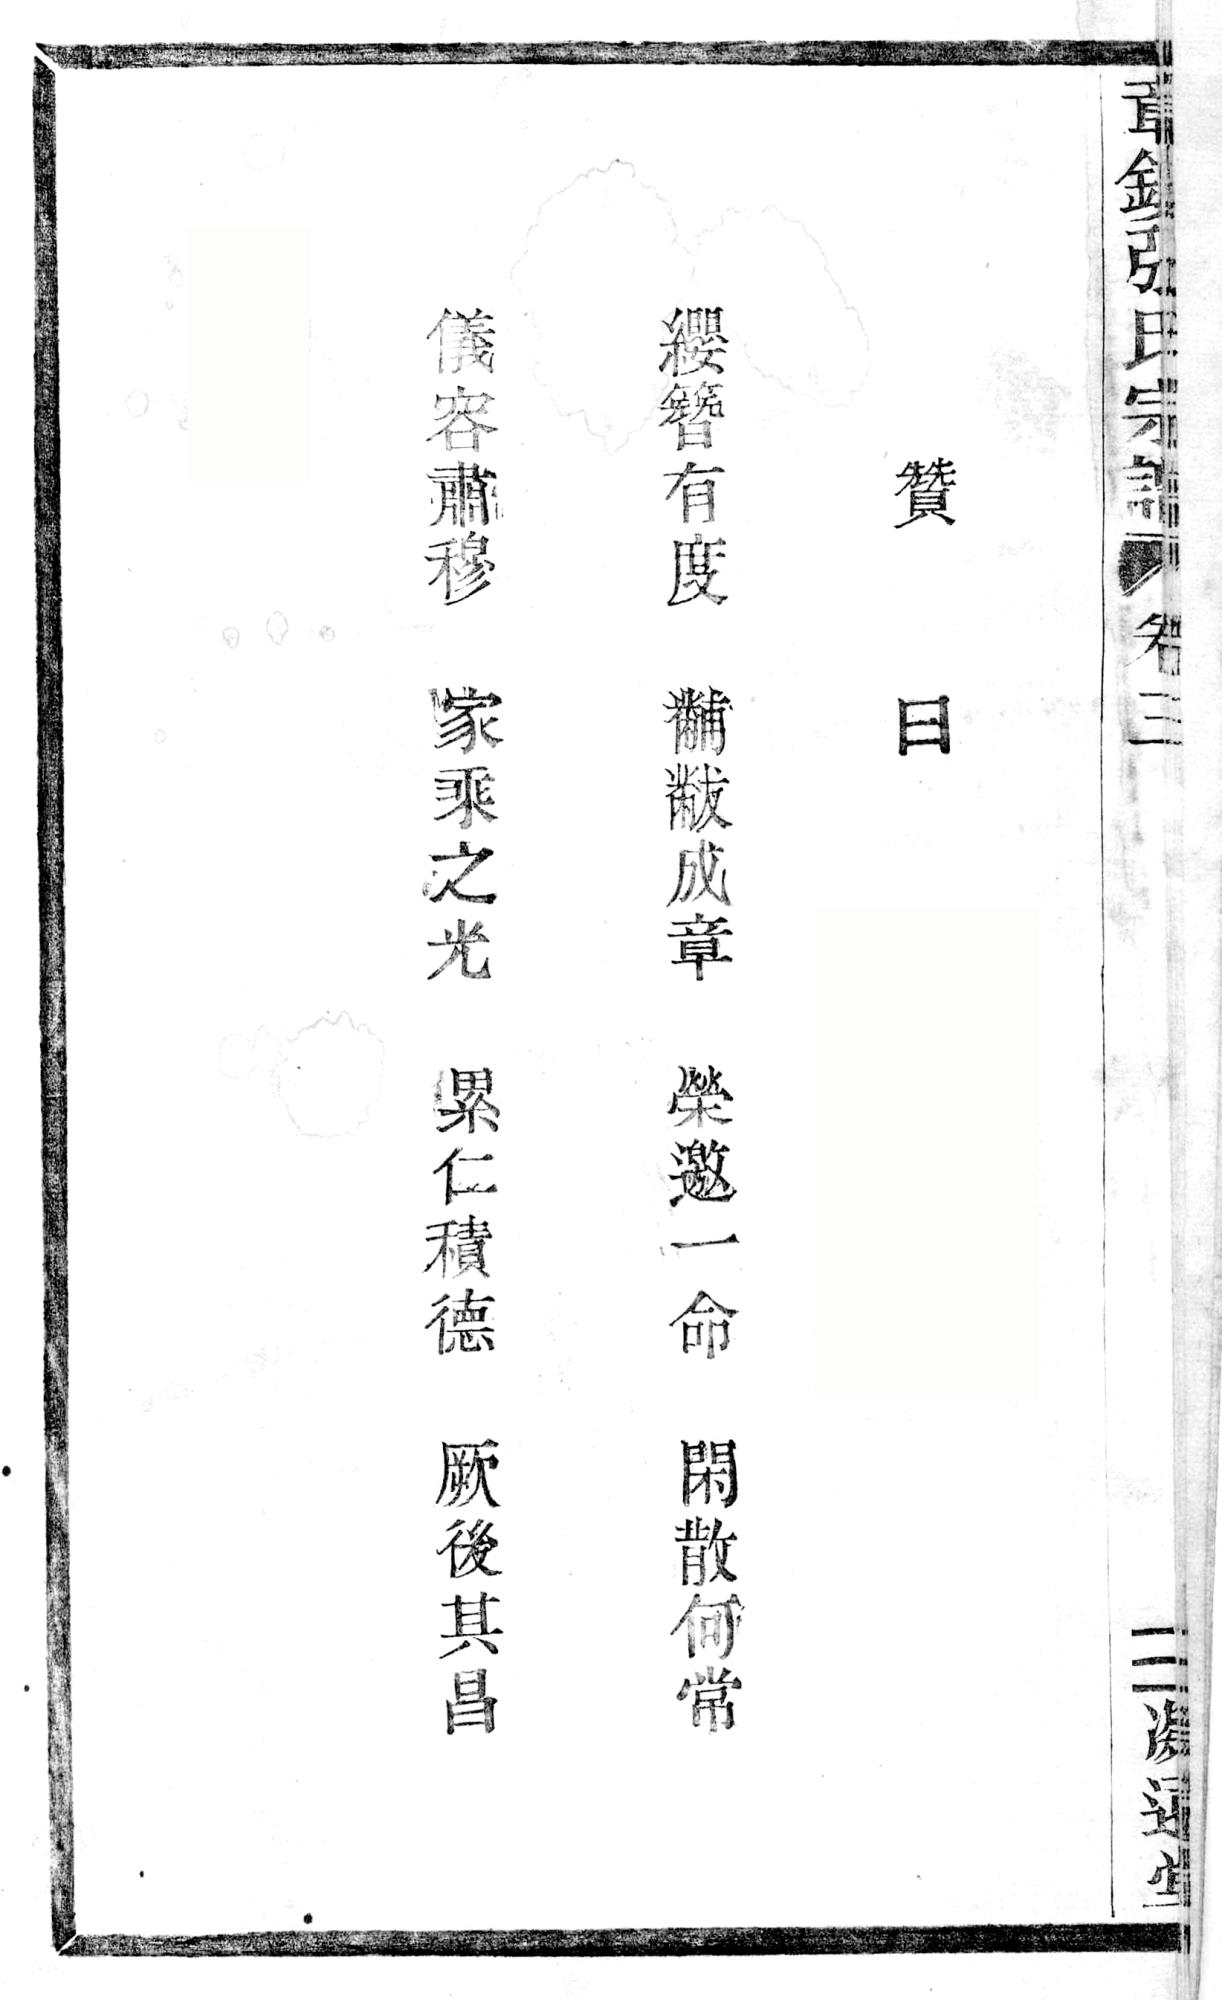 贊曰
纓簪有度 黼黻成章 榮邀一命 閑散何常
儀容肅穆 家乘之光 累仁積德 厥後其昌
張氏宗譜 卷三
三